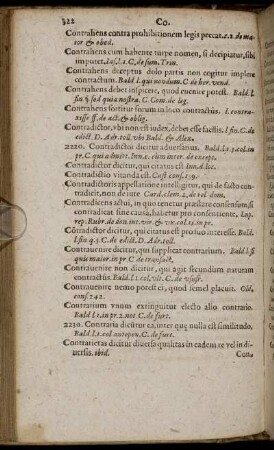 322 Co.
Contrahens contra prohibitionem legis peccat. c. 2 de ma-
ior & obed.
Contrahens cum habente turpe nomen, si decipiatur, sibi
imputet. Ias. l. 1. C. de sum. Trin.
Contrahens deceptus dolo partis non cogitur implere
contractum. Bald l. qui nondum. C. de her. vend.
Contrahens debet inspicere, quod euenire potest. Bald. l.
fin & sed quia nostra. G. Com. de leg.
Contrahens sortitur forum in loco contractus. l. contra-
xisse ff. de act. & oblig.
Contradictor, vbi non est iudex, debet esse facilis. l. fin. C. de
edict. D. Adr. toll. vbi Bald. & Alex.
2220. Contradictor dicitur aduersarius. Bald. l. 5. col. in
pr. C. qui admitt. Inn. c. cum inter. de except.
Contradictor dicitur, qui citatus est Inn. d. loc.
Contradictio vitanda est. Cast. cons. 159.
Contradictoris appellatione intelligitur, qui de facto con-
tradicit, non de iure Card. clem. 2. de rel. dom.
Contradicens actui, in quo tenetur præstare consensum, si
contradicat sine causa, habetur pro consentiente, Lap.
rep. Rubr. de don. int. vir. & vx. col. 15. in pr.
Contradictor dicitur, qui citatus est pro suo interesse. Bald.
l. fin q. 5. C. de edict. D. Adr. toll.
Contrauenire non dicitur, qui supplet contrarium. Bald l. si
quis maior. in pr C. de transact.
Contrauenire non dicitur, qui agit secundum naturam
contractus. Bald. l. 1. col. vlt. C. de vsufr.
Contrauenire nemo potest ei, quod semel placuit. Old.
cons. 242.
Contrarium vnum extinguitur electo alio contrario.
Bald l. 1. in pr. 2. not C. de furt.
2230. Contraria dicuntur ea, inter quę nulla est similitudo.
Bald. l. 1. col antepen. C. de furt.
Contrarietas dicitur diuersa qualitas in eadem re vel in di-
uersis. ibid. Con-